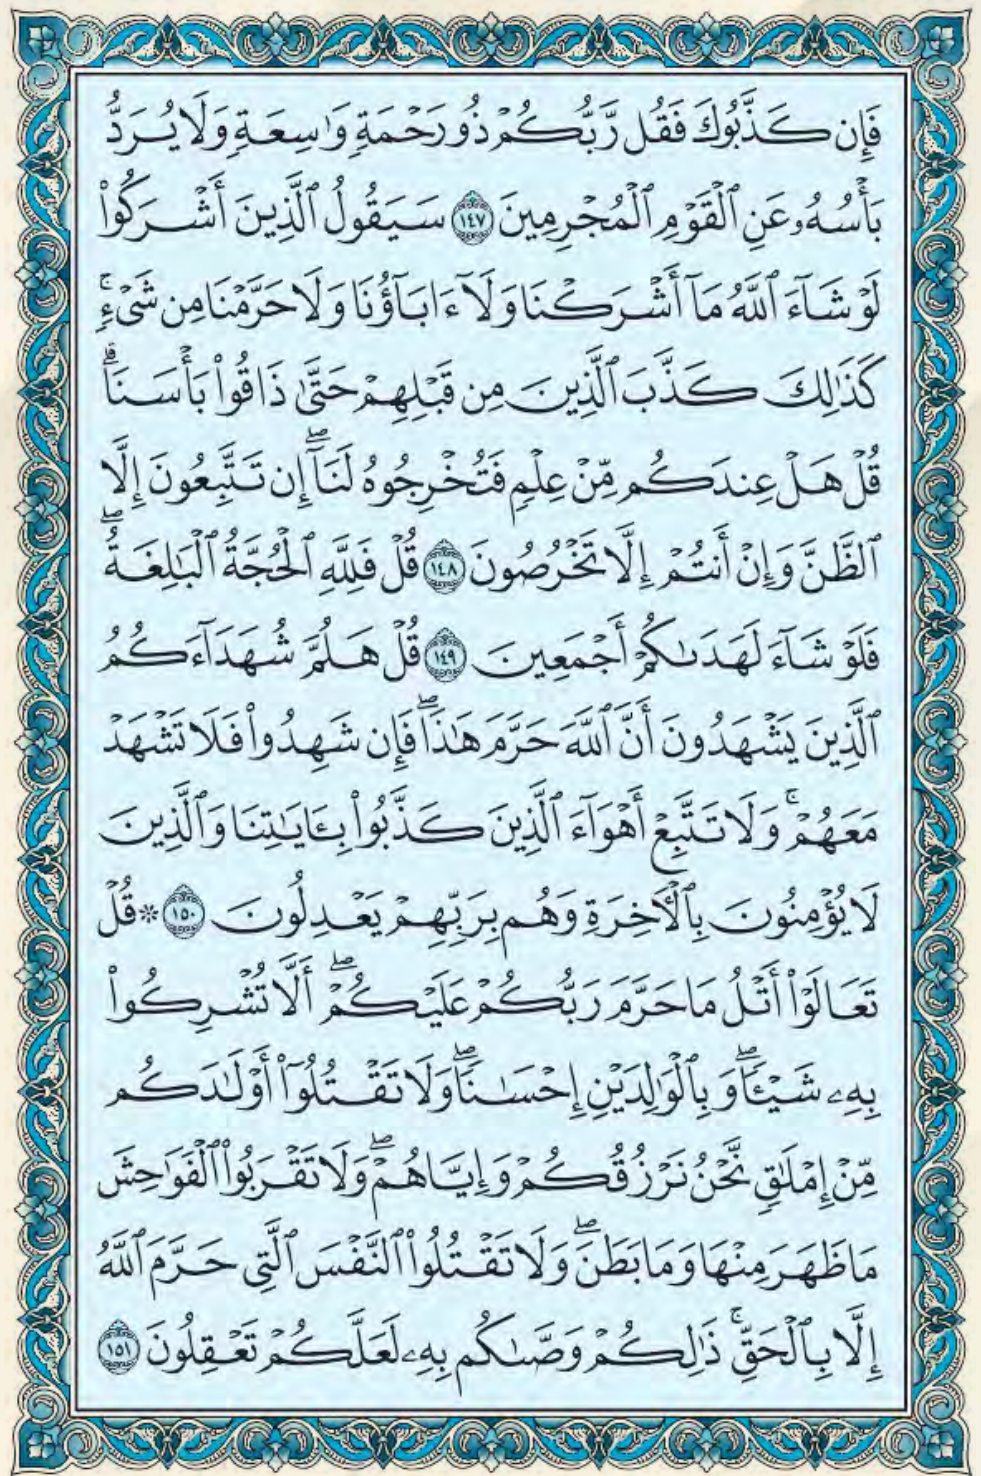 فَإِن كَذَّبُوكَ فَقُل رَّبُّكُمْ ذُو رَحْمَةٍ وَٰسِعَةٍ وَلَا يُرَدُّ
بَأْسُهُۥ عَنِ ٱلْقَوْمِ ٱلْمُجْرِمِينَ ١٤٧ سَيَقُولُ ٱلَّذِينَ أَشْرَكُوا۟
لَوْ شَآءَ ٱللَّهُ مَآ أَشْرَكْنَا وَلَآ ءَابَآؤُنَا وَلَا حَرَّمْنَا مِن شَىْءٍ ۚ
كَذَٰلِكَ كَذَّبَ ٱلَّذِينَ مِن قَبْلِهِمْ حَتَّىٰ ذَاقُوا۟ بَأْسَنَا ۗ
قُلْ هَلْ عِندَكُم مِّنْ عِلْمٍ فَتُخْرِجُوهُ لَنَآ ۖ إِن تَتَّبِعُونَ إِلَّا
ٱلظَّنَّ وَإِنْ أَنتُمْ إِلَّا تَخْرُصُونَ ١٤٨ قُلْ فَلِلَّهِ ٱلْحُجَّةُ ٱلْبَٰلِغَةُ ۖ
فَلَوْ شَآءَ لَهَدَىٰكُمْ أَجْمَعِينَ ١٤٩ قُلْ هَلُمَّ شُهَدَآءَكُمُ
ٱلَّذِينَ يَشْهَدُونَ أَنَّ ٱللَّهَ حَرَّمَ هَٰذَا ۖ فَإِن شَهِدُوا۟ فَلَا تَشْهَدْ
مَعَهُمْ ۚ وَلَا تَتَّبِعْ أَهْوَآءَ ٱلَّذِينَ كَذَّبُوا۟ بِـَٔايَٰتِنَا وَٱلَّذِينَ
لَا يُؤْمِنُونَ بِٱلْـَٔاخِرَةِ وَهُم بِرَبِّهِمْ يَعْدِلُونَ ١٥٠ * قُلْ
تَعَالَوْا۟ أَتْلُ مَا حَرَّمَ رَبُّكُمْ عَلَيْكُمْ ۖ أَلَّا تُشْرِكُوا۟
بِهِۦ شَيْـًٔا ۖ وَبِٱلْوَٰلِدَيْنِ إِحْسَٰنًا ۖ وَلَا تَقْتُلُوٓا۟ أَوْلَٰدَكُم
مِّنْ إِمْلَٰقٍ ۖ نَّحْنُ نَرْزُقُكُمْ وَإِيَّاهُمْ ۖ وَلَا تَقْرَبُوا۟ ٱلْفَوَٰحِشَ
مَا ظَهَرَ مِنْهَا وَمَا بَطَنَ ۖ وَلَا تَقْتُلُوا۟ ٱلنَّفْسَ ٱلَّتِى حَرَّمَ ٱللَّهُ
إِلَّا بِٱلْحَقِّ ۚ ذَٰلِكُمْ وَصَّىٰكُم بِهِۦ لَعَلَّكُمْ تَعْقِلُونَ ١٥١